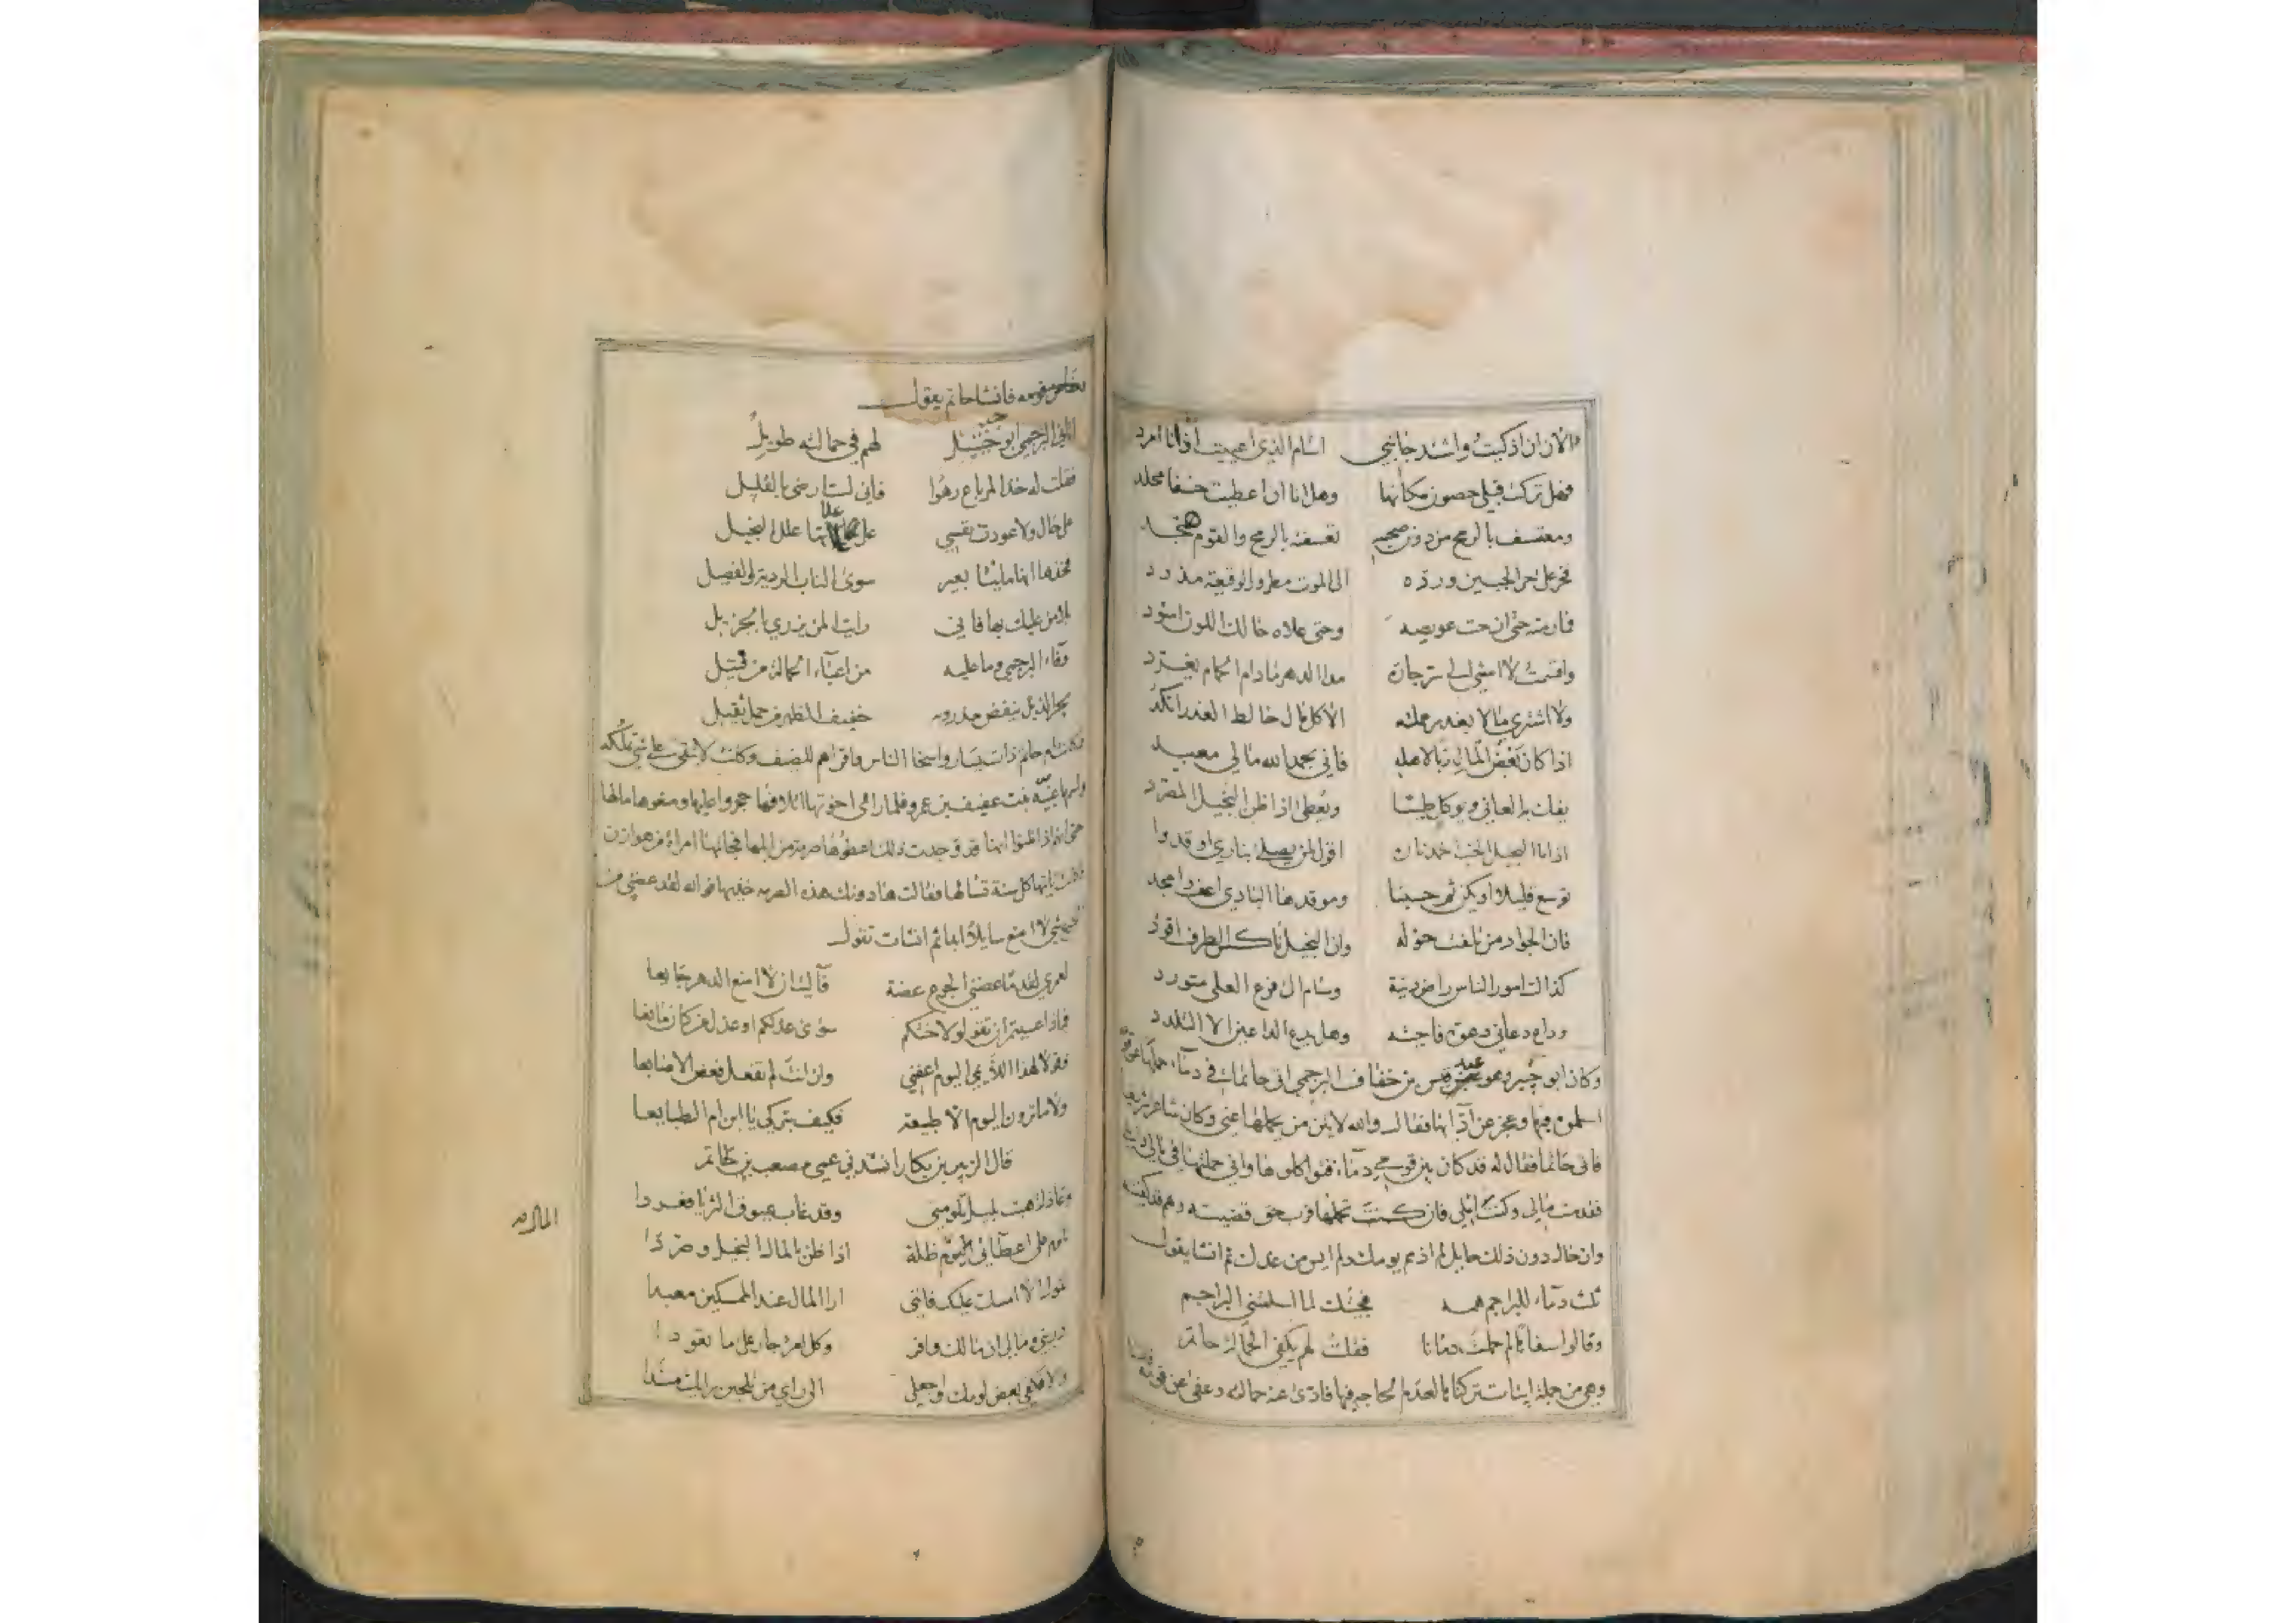 الان ان ذكيت واشتد جانبي اسام الذي اعييت اذ انا امرد
فهل تركت قبلي حصون مكانها وهل انا ان اعطيت خسفا مخلد
ومعتسف بالرمح من دون صحبه تعسفته بالرمح والقوم
فخر على حر الجبين وردّه الى الموت مطرور الوقيعة مذرد
فارمته حتى عويصه وحتى علاه حالك اللون اسود
واقسمت لا امشي الى جارة مدا الدهر ما دام الحمام يغرد
ولا اشتري مالا بغدر علمته الا كل مال خالط الغدر انكد
اذا كان بعض المال ربا لاهله فاني بحمد الله مالي معبد
يفك به العاني ويوكل طيبا ويعطى اذا ظن البخيل المصرد
اذا ما البخيل الخب اخمد ناره اقول لمن يصلى بناري اوقدوا
توسع قليلا او يكن ثم حسبنا وموقدها البادي اعف وامجد
فان الجواد من تلفت حوله وان البخيل ناكس الطرف اقود
كذاك امور الناس راض دنية وسام الى فرع العلى متورد
وداع دعاني دعوة فاجبته وهل يدع الداعين الا البلدد
وكان ابو جبير وهو عبد قيس بن خفاف البرجمي اتى حاتما في دماء حملها عن قومه
اسلموه فيها وعجز عن ادائها فقال والله لاتين من يحملها عني وكان شاعرا شريفا
فاتى حاتما فقال له قد كان بين قومي دماء فتواكلوها واني حملتها في مالي
فقدمت مالي وكنت املي فان كنت تحملها فرب حق قضيته وهم قد كفيته
وان حال دون ذلك حايل لم اذمم يومك ولم ايس من غدك ثم انشا يقول
دماء للبراجم فجئتك لما اسلمتني البراجم
وقالوا سفاها لم حملت دمانا فقلت لهم يكفي الحمالة حاتم
وهي من جملة ابيات تركنا لعدم الحاجة فيها فادى عنه حمالته دعفى عن قومه
من قومه فانشا حاتم يقول
اتاني البرجمي ابو جبيل لهم في حمالته طويل
فقلت له خذ المرباع رهوا فاني لست ارضى بالقليل
على حال ولا عودت نفسي على علاتها علل البخيل
فخذها انها مايتا بعير سوى الناب الردية والفصيل
بلا من عليك بها فاني رايت المن يزري بالجزيل
وفاء البرجمي وما عليه من اعباء الحمالة من فتيل
يجر الذيل ينفض مذرويه خفيف الظهر من حمل ثقيل
وكانت ام حاتم ذات يسار واسخا الناس واقراهم للضيف وكانت لا تبقي على شي تملكه
واسمها عنبة بنت عفيف بن عمرو فلما راى اخوتها اتلافها حجروا عليها ومنعوها مالها
حتى اذا ظنوا انها قد وجدت ذلك اعطوها صرمة من ابلها فجاتها امراة من هوازن
كانت تاتيها كل سنة تسالها فقالت ها دونك هذه الصرمه خذيها فوالله لقد عضني من
الجوع شي لا امنع سايلا ابدا ثم انشات تقول
لعمري لقدما عضني الجوع عضة فآليت ان لا امنع الدهر جايعا
فماذا عسيتم ان تقولوا لاختكم سوى عذلكم او عذل من كان مانعا
فقولا لهذا اللايمي اليوم اعفني وان انت لم تفعل فعض الاصابعا
ولا ما ترون اليوم الا طبيعة فكيف بتركي يا ابن ام الطبايعا
قال الزبير بن بكار انشدني عمي مصعب بن حاتم
وعاذلة هبت بليل تلومني وقد غاب عيوق الثريا فغردا
تلوم على اعطائي اليوم ظلة اذا ظن بالمال البخيل وصردا
تقول الا امسك عليك فانني ارا المال عند الممسكين معبدا
ذريني ومالي ان مالك وافر وكل امر جار على ما تعودا
ولا تلقي بعض لومك واجعلي الى راي من تلحين رايك مسندا